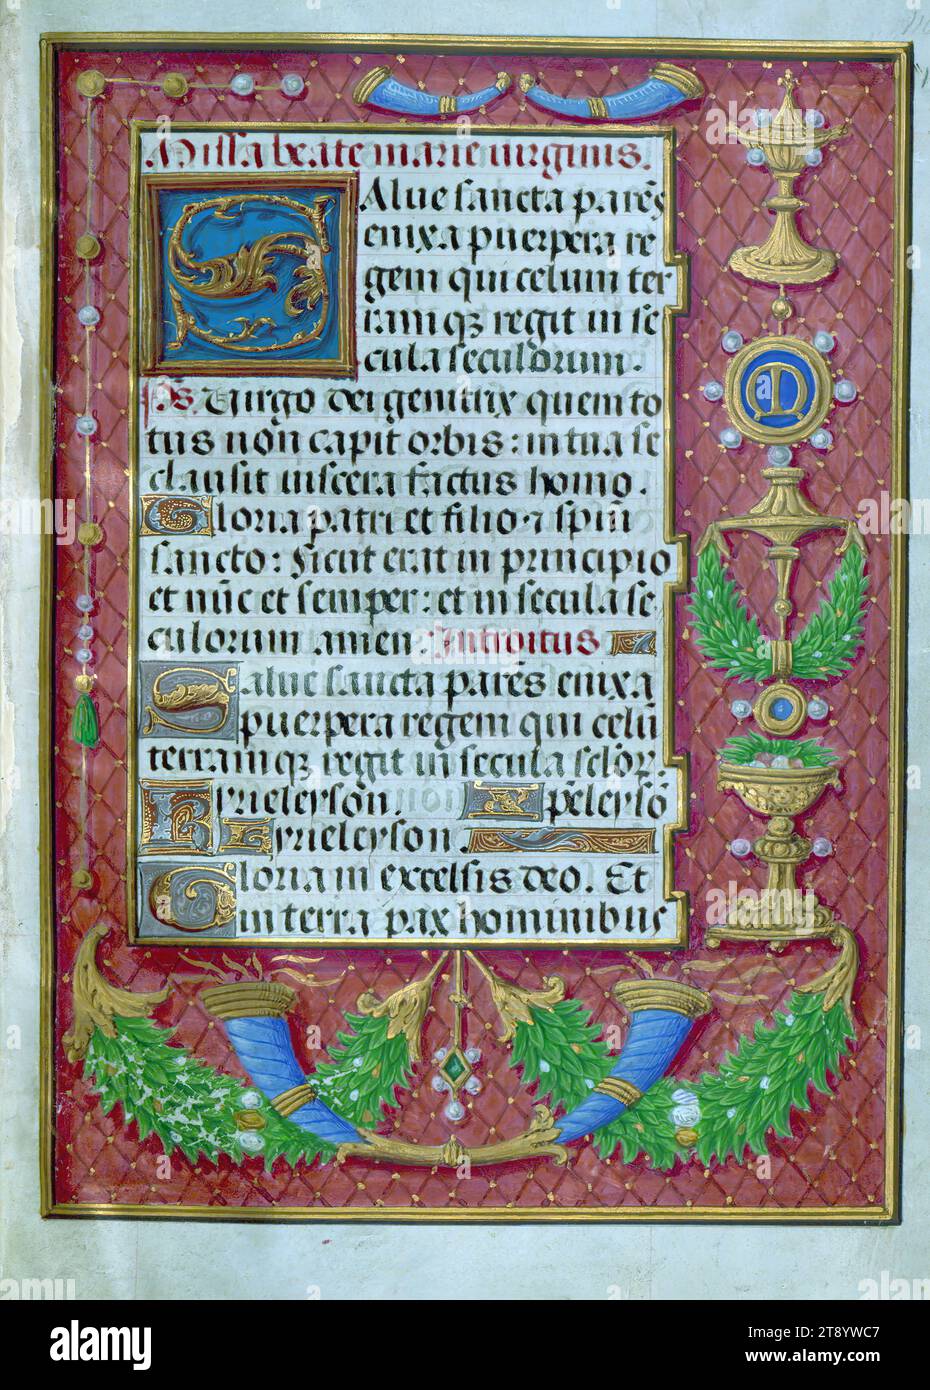 Missa beate marie uirginis.
Salue sancta parẽs
enixa puerpera re
gem qui celum ter
ramqꝫ regit in se
cula seculorum.
p̃s. Uirgo dei genitrix quem to
tus non capit orbis: in tua se
clausit uiscera factus homo.
Gloria patri et filio ⁊ spiri̅
sancto: sicut erat in principio
et nũc et semper: et in secula se
culorum amen. Introitus
Salue sancta parẽs enixa
puerpera regem qui celũ
terramqꝫ regit in secula sclo̅ꝝ.
Kyrieleyson. Xp̃eleysõ
Kyrieleyson.
Gloria in excelsis deo. Et
in terra pax hominibus
M
alamy
Image ID: 2T8YWC7
www.alamy.com